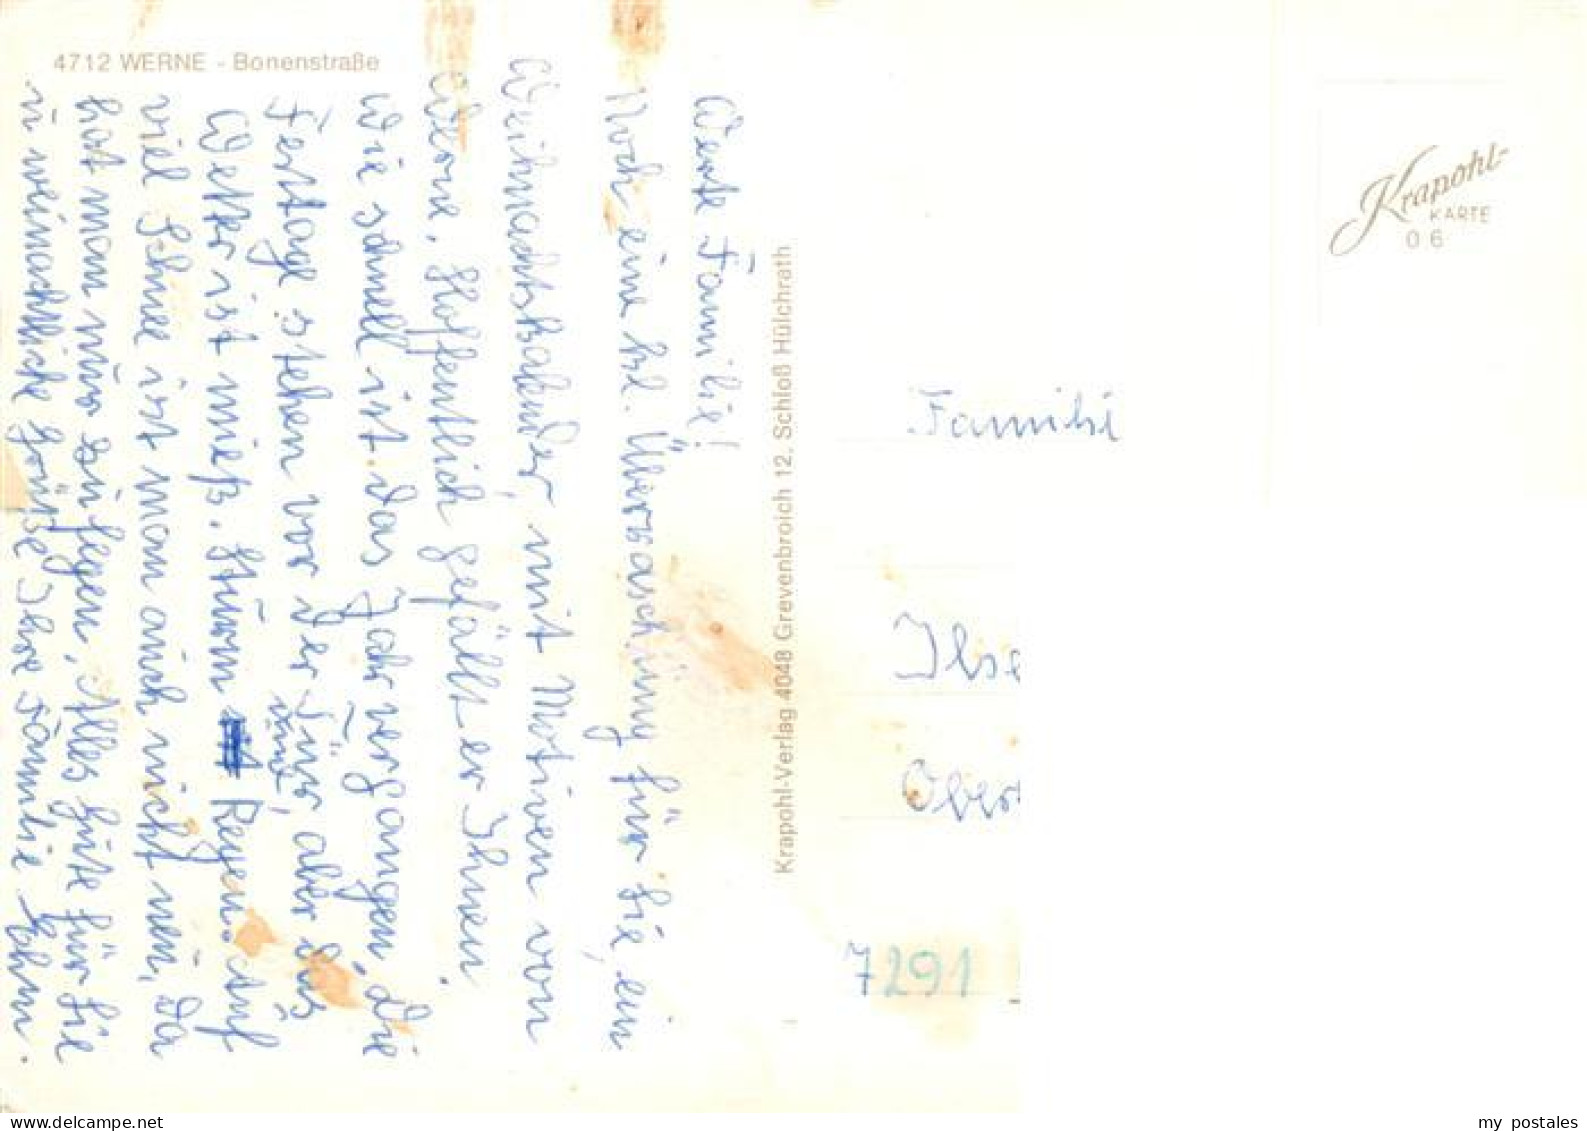 4712 WERNE - Bonenstraße
Werte Familie!
Noch eine kl. Überraschung für Sie, ein
Weihnachtskalender, mit Motiven von
Werne. Hoffentlich gefällt er Ihnen.
Wie schnell ist das Jahr vergangen. Die
Festtage stehen vor der Tür, aber das
Wetter ist mieß. Sturm und Regen. Auf
viel Schnee ist man auch nicht neu, da
hat man nur zu fegen. Alles gute für Sie
u weinachtliche Grüße Ihre Familie
Krapohl-Verlag 4048 Grevenbroich 12, Schloß Hülchrath
Krapohl-
KARTE
06
Familie
Ilse
Ober
7291
my postales